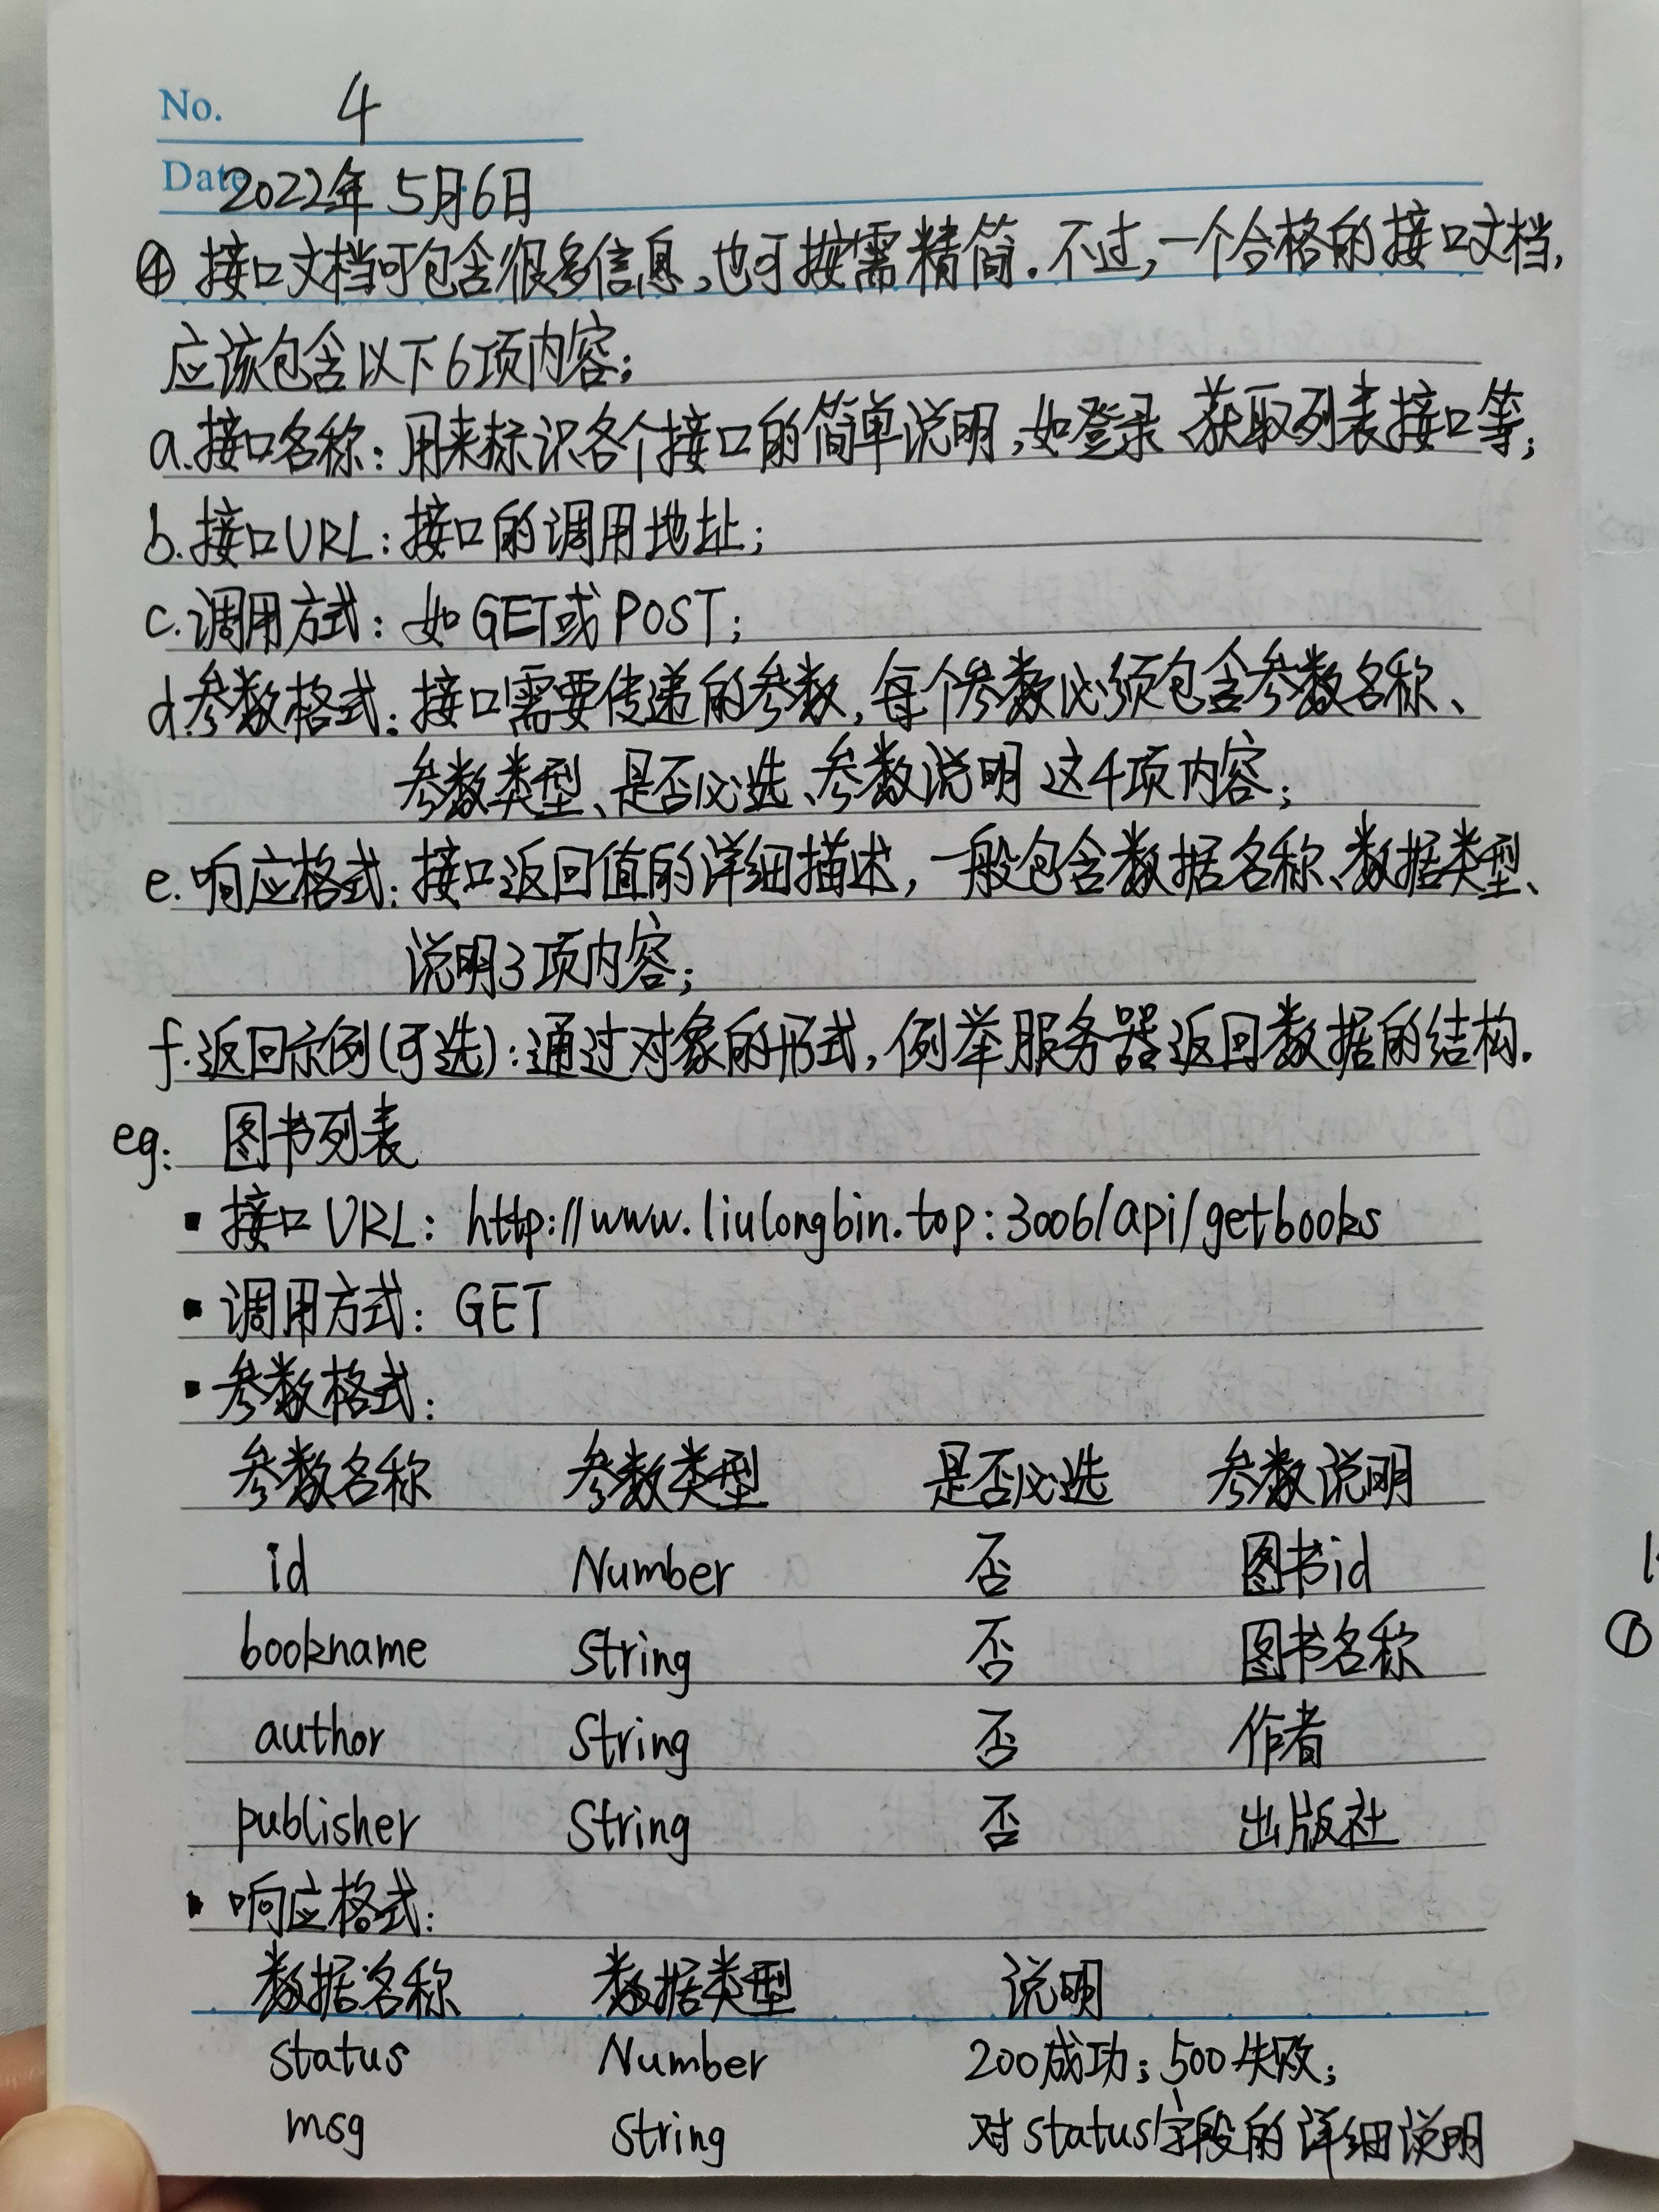 No. 4
Date 2022年5月6日
④ 接口文档可包含很多信息,也可按需精简.不过,一个合格的接口文档,
应该包含以下6项内容;
a.接口名称:用来标识各个接口的简单说明,如登录、获取列表接口等;
b.接口URL:接口的调用地址;
c.调用方式:如GET或POST;
d.参数格式:接口需要传递的参数,每个参数必须包含参数名称、
参数类型、是否必选、参数说明 这4项内容;
e.响应格式:接口返回值的详细描述,一般包含数据名称、数据类型、
说明3项内容;
f.返回示例(可选):通过对象的形式,例举服务器返回数据的结构.
eg: 图书列表
▪ 接口URL: http://www.liulongbin.top:3006/api/getbooks
▪ 调用方式: GET
▪ 参数格式:
参数名称 参数类型 是否必选 参数说明
id Number 否 图书id
bookname String 否 图书名称
author String 否 作者
publisher String 否 出版社
▪ 响应格式:
数据名称 数据类型 说明
status Number 200成功;500失败;
msg String 对status字段的详细说明
①